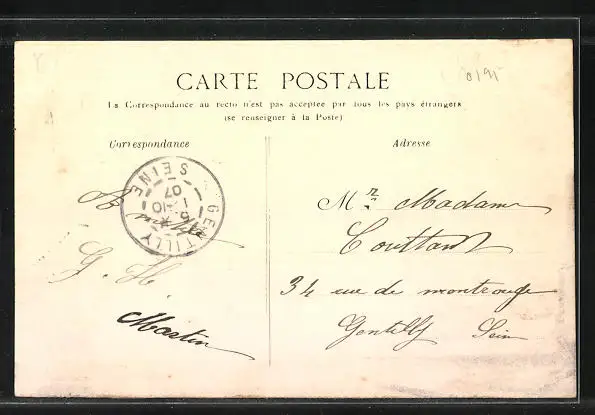 CARTE POSTALE
La Correspondance au recto n'est pas acceptée par tous les pays étrangers
(se renseigner à la Poste)
Correspondance
Adresse
GENTILLY
SEINE
07
Mr Madame
Couttant
34 rue de montrouge
Gentilly Sein
G. H.
Martin